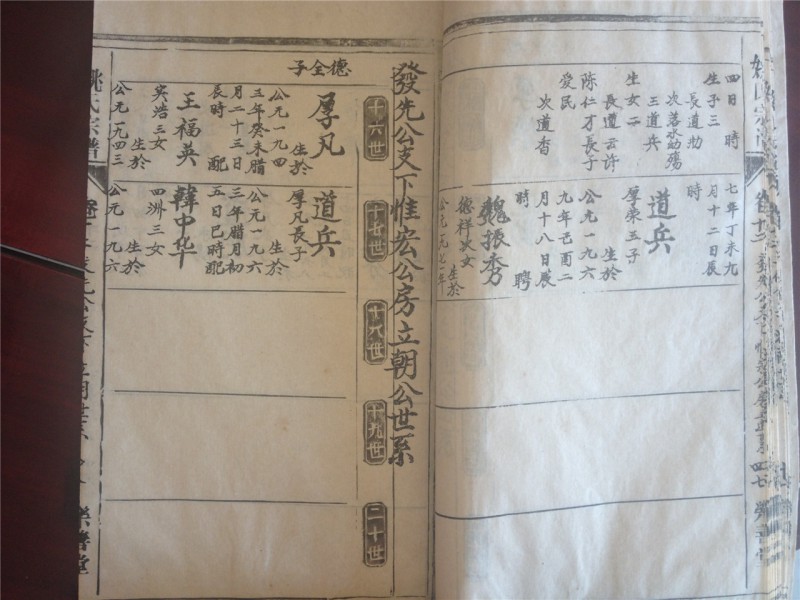 四日時
生子三
長道勋
次落水殇
三道兵
生女二
長適云许
陈仁才長子
爱民
次道香
七年丁未九
月十二日辰
時
道兵
厚荣三子
生於
公元一九六
九年己酉二
月十八日辰
時 聘
魏振秀
德祥女
生於
公元一九七一年
發先公支下惟宏公房立朝公世系
十六世
十七世
十八世
十九世
二十世
德全子
厚凡
生於
公元一九四
三年癸未腊
月二十三日
辰時 配
王福英
宾浩三女
生於
公元一九四三
道兵
厚凡長子
生於
公元一九六
三年腊月初
五日巳時配
韓中华
四洲三女
生於
公元一九六
姚氏宗譜
樂善堂